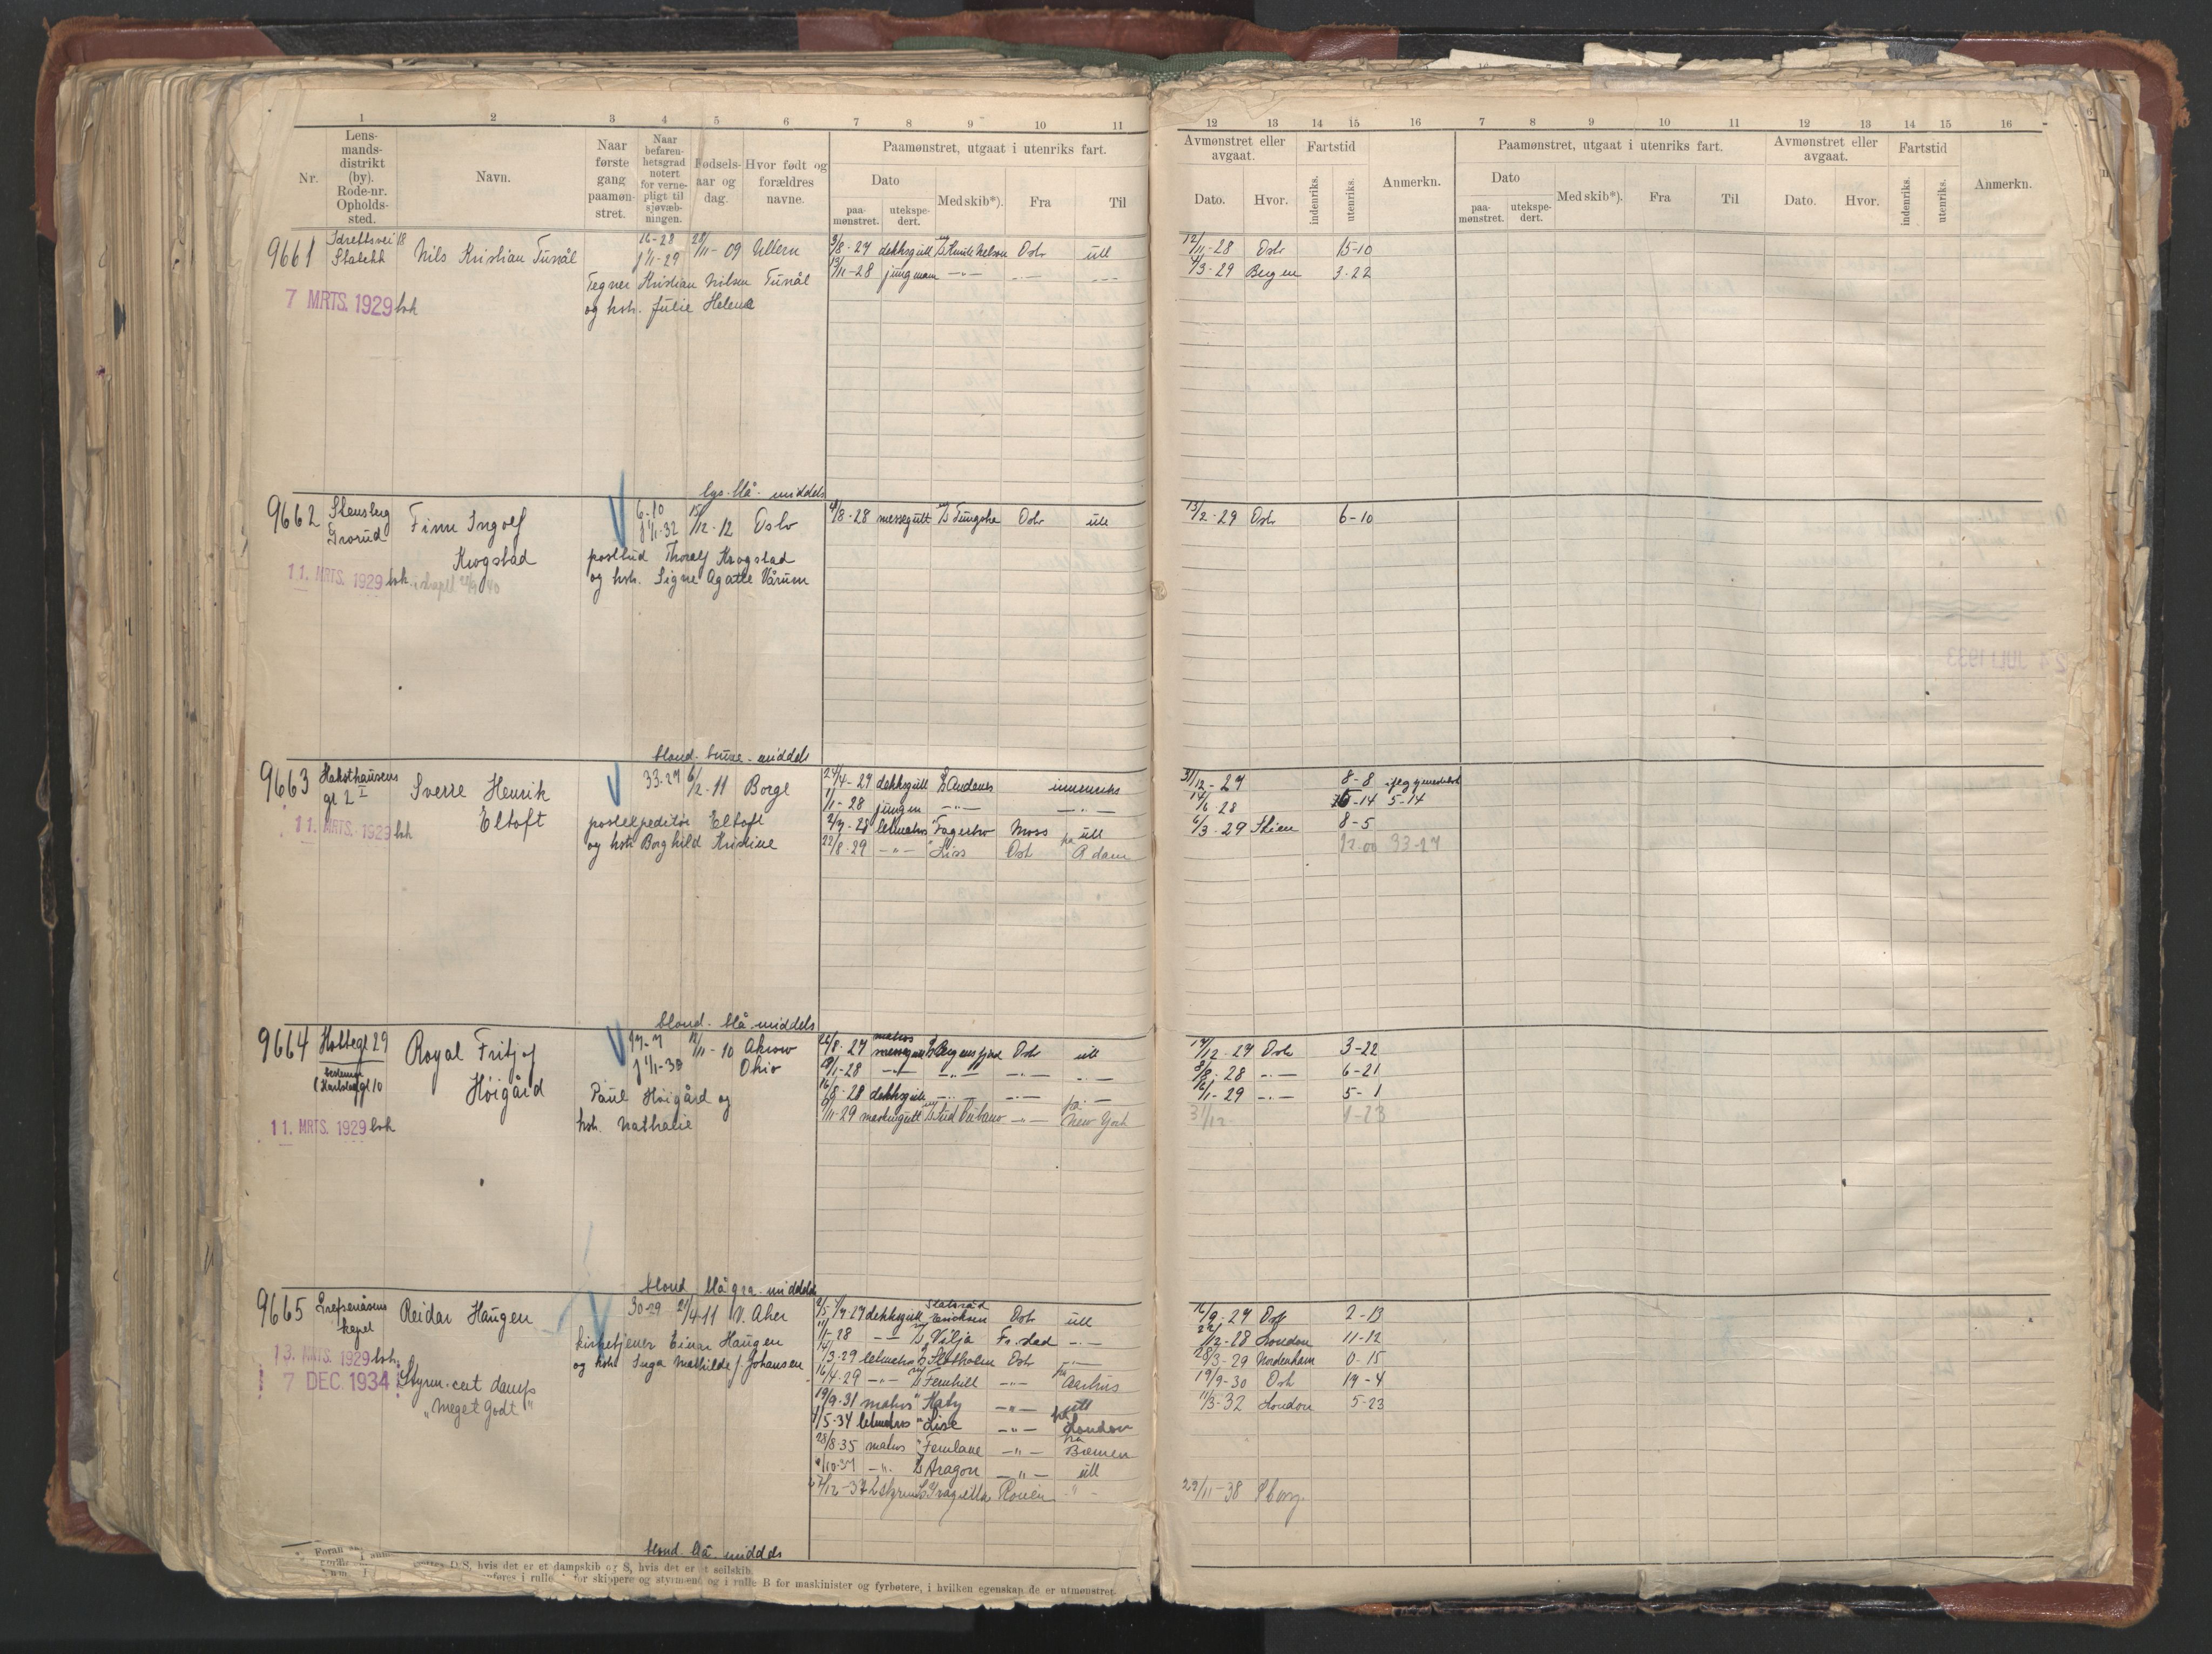 1 2 3 4 5 6 7 8 9 10 11
Nr.
Lens-
mands-
distrikt
(by).
Rode-nr.
Opholds-
sted.
Navn.
Naar
første
gang
paamøn-
stret.
Naar
befaren-
hetsgrad
notert
for verne-
pligt til
sjøvæb-
ningen.
Fødsels-
aar og
dag.
Hvor født og
forældres
navne.
Paamønstret, utgaat i utenriks fart.
Dato
paa-
mønstret.
utekspe-
dert.
Med skib*).
Fra
Til
12 13 14 15 16 7 8 9 10 11 12 13 14 15 16
Avmønstret eller
avgaat.
Dato.
Hvor.
Fartstid
indenriks.
utenriks.
Anmerkn.
Paamønstret, utgaat i utenriks fart.
Dato
paa-
mønstret.
utekspe-
dert.
Med skib*).
Fra
Til
Avmønstret eller
avgaat.
Dato.
Hvor.
Fartstid
indenriks.
utenriks.
Anmerkn.
9661 Idrettsvei 18 Nils Kristian Tunål 16-28 28/11-09 Ullern
Stabekk
j 1/1-29
3/8-27 dekksgutt Knute Nelson Oslo utl 12/11-28 Oslo 15-10
13/11-28 jungmann -"- -"- -"- 4/3-29 Bergen 3-22
Tegner Kristian Nilsen Tunål
og hstr. Julie Helena
7 MRTS. 1929 bok
lys. blå. middels
9662 Stensberg Finn Ingolf 6-10 15/12-12 Oslo
Grorud Krogstad j 1/1-32
4/8-28 messegutt Tungsha Oslo utl 13/2-29 Oslo 6-10
postbud Thoralf Krogstad
og hstr. Signe Agatte Vårum
11. MRTS. 1929 bok
blond. brune. middels
9663 Haksthausens Sverre Henrik 33-27 6/2-11 Borge
gt 2 I Eltoft
24/4-27 dekksgutt Andenes innenriks 31/12-27 8-8
1/1-28 jungm -"- -"- 14/6-28 5-14 5-14
2/7-28 letmatros Fagerbro Moss utl 6/3-29 Skien 8-5
22/8-29 -"- Liss Oslo fra Adam 12.00 33-27
postekspeditør Eltoft
og hstr Borghild Kristine
11. MRTS. 1929 bok
blond. blå. middels
9664 Holtegt 29 Royal Fritjof 17-7 12/11-10 Akrow
Høigård j 1/1-30 Ohio
matros
26/8-27 messegutt Bergensfjord Oslo utl 17/12-27 Oslo 3-22
18/1-28 -"- -"- -"- -"- 8/8-28 -"- 6-21
16/8-28 dekksgutt -"- -"- -"- 16/1-29 -"- 5-1
9/11-29 maskingutt -"- fra New York 31/12- 1-23
Paul Høigård og
hstr. Nathalie
11. MRTS. 1929 bok
blond. blå gra. middels
9665 Grefsenåsens Reidar Haugen 30-29 21/4-11 V. Aker
kapel
2/5-7/7-27 dekksgutt Statsråd Ericksen Oslo utl 16/9-27 Oslo 2-13
11/1-28 -"- Vilja Fr.stad -"- 22/12-28 London 11-12
14/3-29 letmatros Slotholm Oslo -"- 28/3-29 Nordenham 0-15
16/4-29 -"- Fernhill -"- fra Aarhus 19/9-30 Oslo 17-4
19/9-31 matros " Haby -"- utl 11/3-32 London 5-23
1/5-34 letmatros " Lise -"- fra London
28/8-35 matros " Fernlane -"- fra Bremen
/10-37 -"- Aragon -"- utl
/12-37 2 styrm Rouen -"- 29/11-38
kirketjener Einar Haugen
og hstr Inga Mathilde f. Johansen
13. MRTS. 1929 bok.
7 DEC. 1934 Styrm. cert damps
„Meget Godt"
blond blå middels
hvis det er et dampskib og S, hvis det er et seilskib.
føres i rulle for skippere og styrmænd og i rulle B for maskinister og fyrbøtere, i hvilken egenskap de er utmønstret.